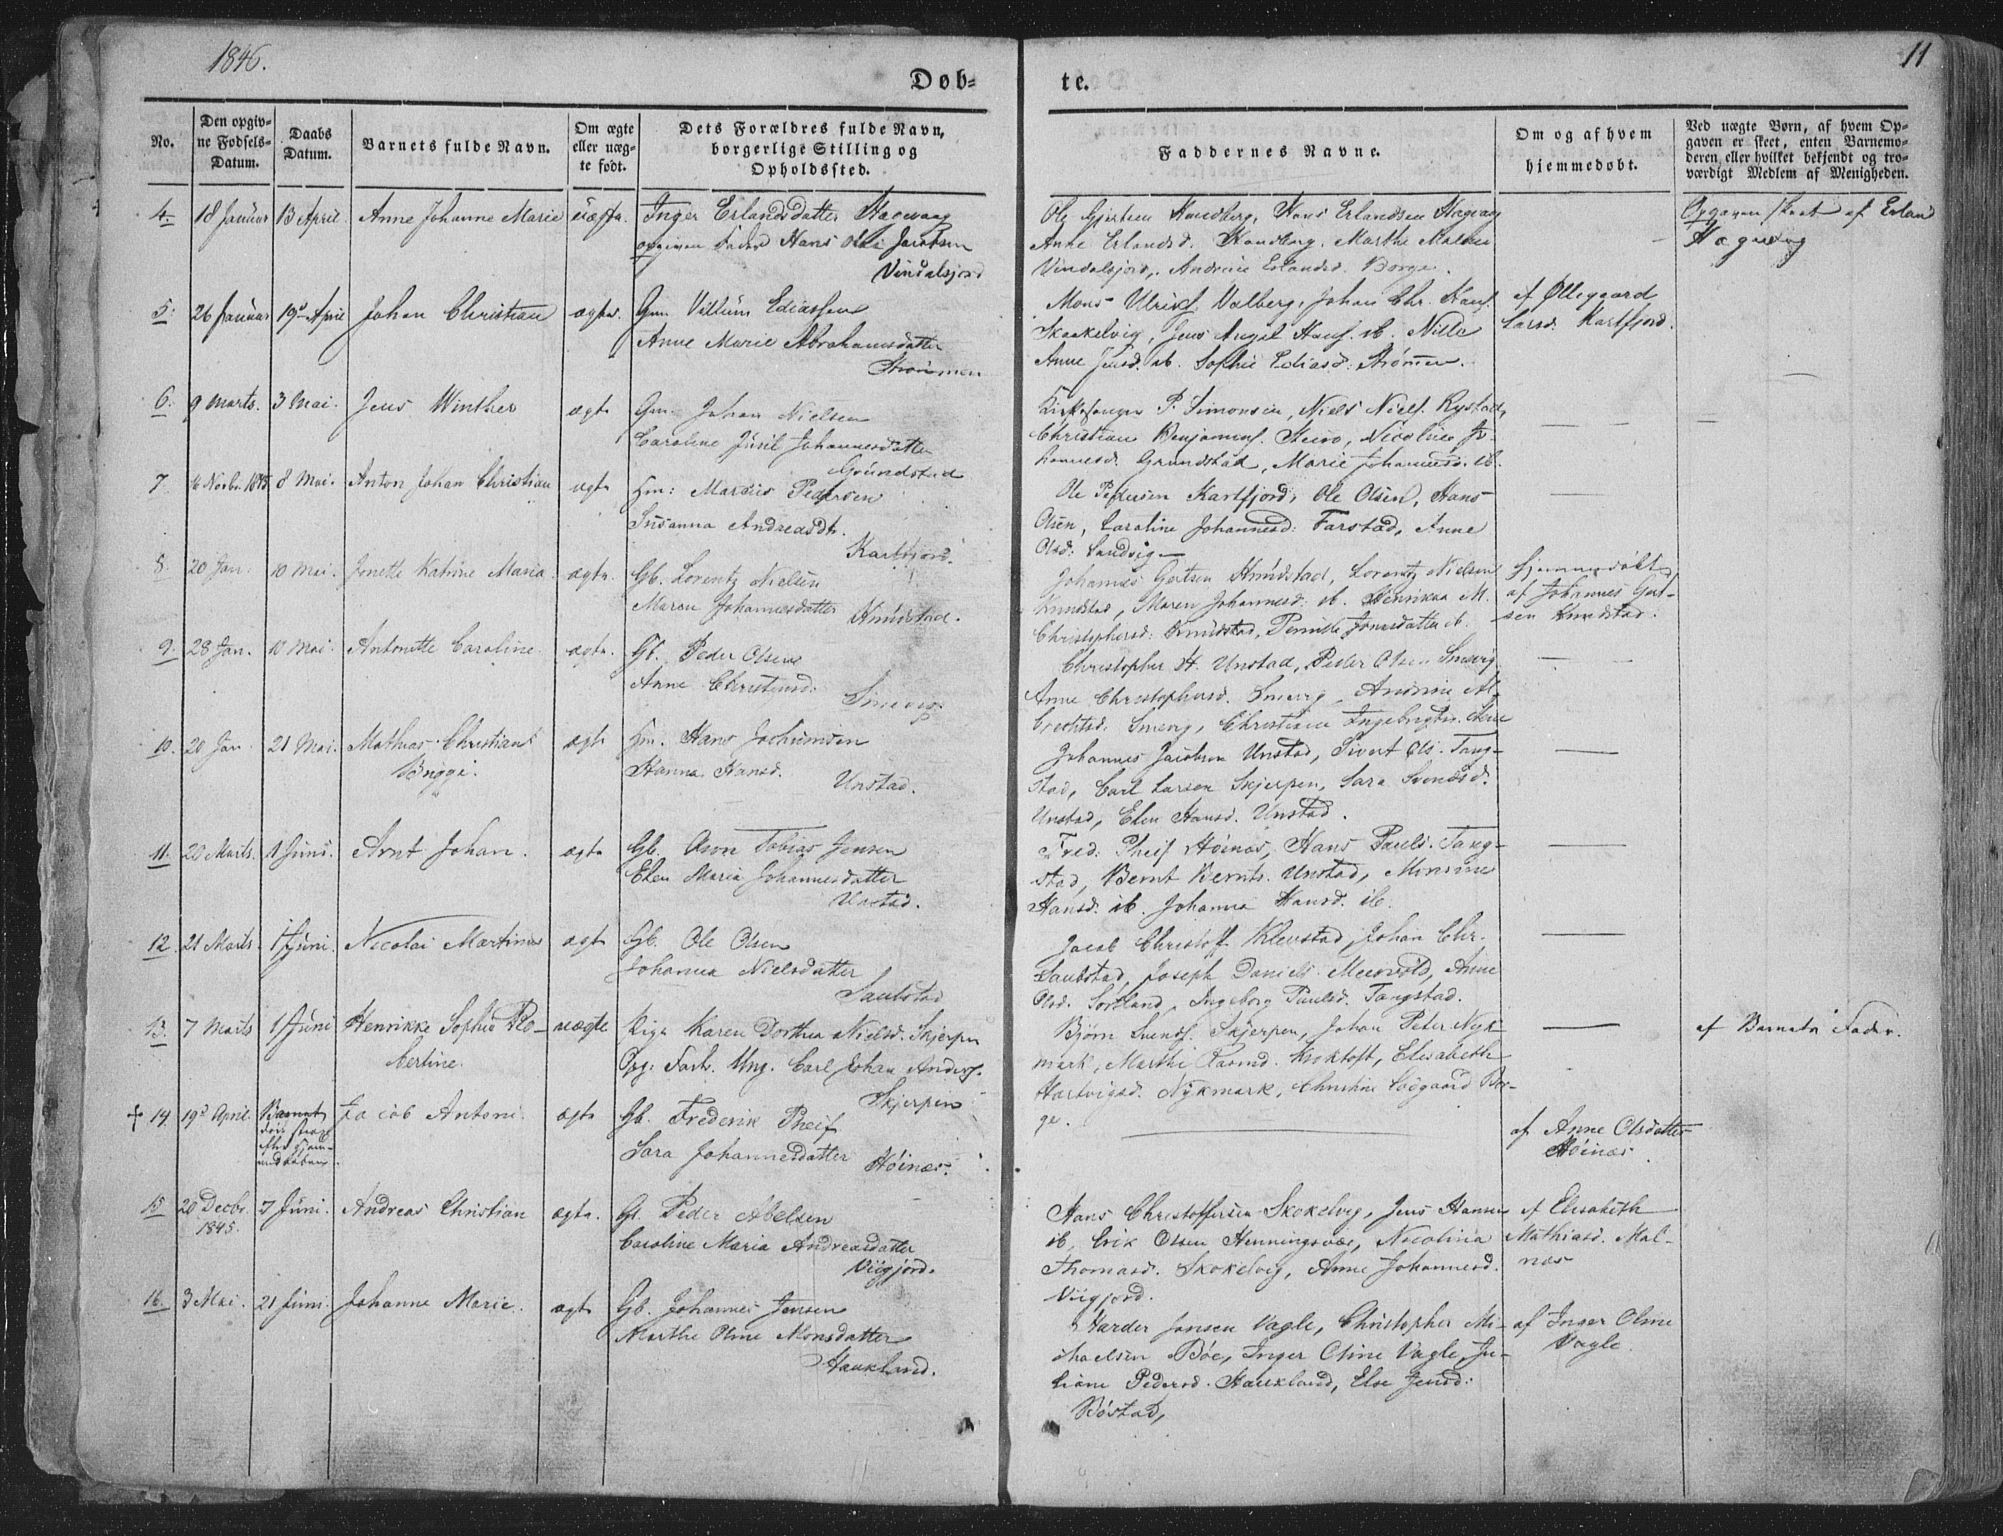 1846.
11
Døb-
te.
No.
Den opgiv-
ne Fødsels-
Datum.
Daabs
Datum.
Barnets fulde Navn.
Om ægte
eller uæg-
te født.
Dets Forældres fulde Navn,
borgerlige Stilling og
Opholdssted.
Faddernes Navne.
Om og af hvem
hjemmedøbt.
Ved uægte Børn, af hvem Op-
gaven er skeet, enten Barnemo-
deren, eller hvilket bekjendt og tro-
værdigt Medlem af Menigheden.
4. 18 Januar 13 April. Anne Johanne Marie uægte.
Inger Erlandsdatter Hagevaag
opgiven Fader Hans Jacobsen
Vindalsjord
Ole Gjertsen Sandberg, Hans Erlandsen Hagvag
Anne Erlandsd. Sandberg. Marthe
Vindalsjord, Andrine Erlandsd. Borge.
Opgaven skeet af Erland
Hagvaag
5. 26 Januar 19d April Johan Christian ægte.
Gm. Villum Ediassen
Anne Marie Abrahamsdatter
Strømmen
Mons Ulrichs. Valberg, Johan Chr. Hans.
Skaakelvig, Jens Angel Hans. ib. Nille
Anne Jensd. ib. Sophie Ediasd. Strømen.
af Øllegaard
Larsd. Kartfjord.
6. 9 Marts. 3 Mai. Jens Winther ægte
Gm. Johan Nielsen
Caroline Johannesdatter
Grundstad
Kirkesanger P. Simonsen, Niels Niels. Rystad,
Christian Benjamins. Steiro, Nicoline Jo-
hannesd. Grundstad, Marie Johannesd. ib.
7. 16 Novbr 1845 8 Mai. Anton Johan Christian ægte
Hm: Marcus Pedersen
Susanna Andreasdt.
Kartfjord.
Ole Pedersen Kartfjord, Ole Olsen, Hans
Olsen, Caroline Johannesd: Farstad, Anne
Olsd. Sandvig
8. 20 Jan. 10 Mai. Jonette Katrine Maria. ægte.
Gb. Lorentz Nielsen
Maren Johannesdatter
Knudstad.
Johannes Gertsen Knudstad, Lorentz Nielsen
Knudstad, Maren Johannesd. ib. Henrikka M.
Christophersd: Knudstad, Pernille Jonasdatter ib.
Hjemmedøbt
af Johannes Gert-
sen Knudstad.
9. 28 Jan. 10 Mai. Antonette Caroline. ægte.
Gb. Peder Olsen
Anne Christensd.
Smevig
Christopher H. Unstad, Peder Olsen Smevig
Anne Christophersd. Smevig,
Smevig, Christian Ingebrigts.
10. 20 Jan. 21 Mai. Mathias Christian
Brygge. ægte
Hm. Hans Jochumsen
Hanna Hansd.
Unstad.
Johannes Jacobsen Unstad, Sivert Ols. Tang-
stad, Carl Larsen Skjerpen, Sara Svendsd.
Unstad, Elen Hansd. Unstad.
11. 20 Marts. 1 Juni. Arnt Johan. ægte
Gb. Aron Tobias Jensen
Elen Maria Johannesdatter
Unstad.
Fred: Pheif Høinæs, Hans Pauls. Tang-
stad, Bernt Bernts. Unstad,
Hansd. ib. Johanna Hansd. ib.
12. 21 Marts. 1 Juni. Nicolai Martinus ægte
Gb. Ole Olsen
Johanna Nielsdatter
Saubstad
Jacob Christoff. Klevstad, Johan Chr.
Saubstad, Joseph Daniels. Meervold, Anne
Olsd. Sortland, Ingeborg Paulsd. Tangstad.
13. 7 Marts 1 Juni Henrikke Sophie Ro-
bertine. uægte
Piga Karen Dorthea Nielsd. Skjerpen
Opg: Fader. Ung. Carl Johan Anders.
Skjerpen
Bjørn Svends. Skjerpen, Johan Peter Nyk-
mark, Marthe Rasmd. Kroktoft, Elisabeth
Hartvigsd. Nykmark, Christine Søgaard Bor-
ge.
af Barnets Fader.
+ 14. 19d April. Barnet
døde strax
efter Hjem-
medaaben. Jacob Antoni. ægte
Gb. Frederik Pheif
Sara Johannesdatter Høinæs.
af Anne Olsdatter
Høinæs
15 20 Decbr.
1845. 7 Juni. Andreas Christian ægte.
Gb. Peder Abelsen
Caroline Maria Andreasdatter
Viigjord.
Hans Christoffersen Skokelvig, Jens Hansen
ib, Erik Olsen Henningsvær, Nicolina
Thomasd. Skokelvig, Anne Johannesd.
Viigjord.
af Elisabeth
Mathiasd. Mal-
næs
16. 3 Mai. 21 Juni. Johanne Marie. ægte
Gb. Johannes Jensen
Marthe Oline Monsdatter
Haukland.
Harder Jonsen Vagle, Christopher Mi-
chaelsen Bøe, Inger Oline Vagle, Ju-
liane Pedersd. Haukland, Else Jensd:
Bøstad,
af Inger Oline
Vagle